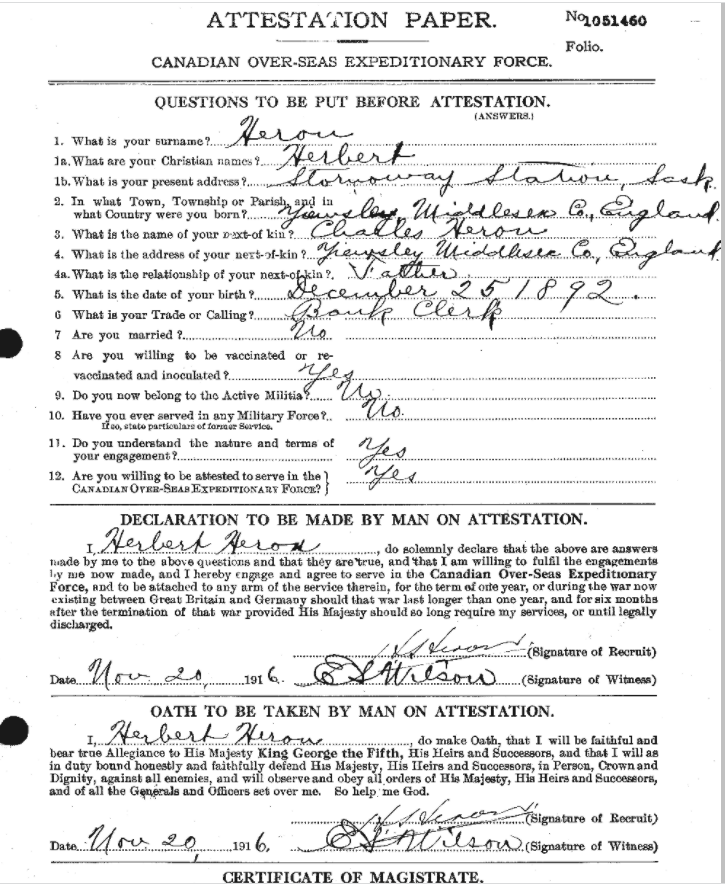 ATTESTATION PAPER.
No 1051460
Folio.
CANADIAN OVER-SEAS EXPEDITIONARY FORCE.
QUESTIONS TO BE PUT BEFORE ATTESTATION.
(ANSWERS.)
1. What is your surname? Heron
1a. What are your Christian names? Herbert
1b. What is your present address? Stornoway Station, Sask.
2. In what Town, Township or Parish, and in
what Country were you born? Yiewsley Middlesex Co., England.
3. What is the name of your next-of kin? Charles Heron
4. What is the address of your next-of-kin? Yiewsley Middlesex Co., England
4a. What is the relationship of your next-of-kin? Father
5. What is the date of your birth? December 25 1892.
6 What is your Trade or Calling? Bank Clerk
7 Are you married? No
8 Are you willing to be vaccinated or re-
vaccinated and inoculated? Yes
9. Do you now belong to the Active Militia? No
10. Have you ever served in any Military Force? No.
If so, state particulars of former Service.
11. Do you understand the nature and terms of
your engagement? Yes
12. Are you willing to be attested to serve in the
CANADIAN OVER-SEAS EXPEDITIONARY FORCE? Yes
DECLARATION TO BE MADE BY MAN ON ATTESTATION.
I, Herbert Heron, do solemnly declare that the above are answers
made by me to the above questions and that they are true, and that I am willing to fulfil the engagements
by me now made, and I hereby engage and agree to serve in the Canadian Over-Seas Expeditionary
Force, and to be attached to any arm of the service therein, for the term of one year, or during the war now
existing between Great Britain and Germany should that war last longer than one year, and for six months
after the termination of that war provided His Majesty should so long require my services, or until legally
discharged.
Heron (Signature of Recruit)
Date Nov 20, 1916. E S Wilson (Signature of Witness)
OATH TO BE TAKEN BY MAN ON ATTESTATION.
I, Herbert Heron, do make Oath, that I will be faithful and
bear true Allegiance to His Majesty King George the Fifth, His Heirs and Successors, and that I will as
in duty bound honestly and faithfully defend His Majesty, His Heirs and Successors, in Person, Crown and
Dignity, against all enemies, and will observe and obey all orders of His Majesty, His Heirs and Successors,
and of all the Generals and Officers set over me. So help me God.
Heron (Signature of Recruit)
Date Nov 20, 1916. E S Wilson (Signature of Witness)
CERTIFICATE OF MAGISTRATE.